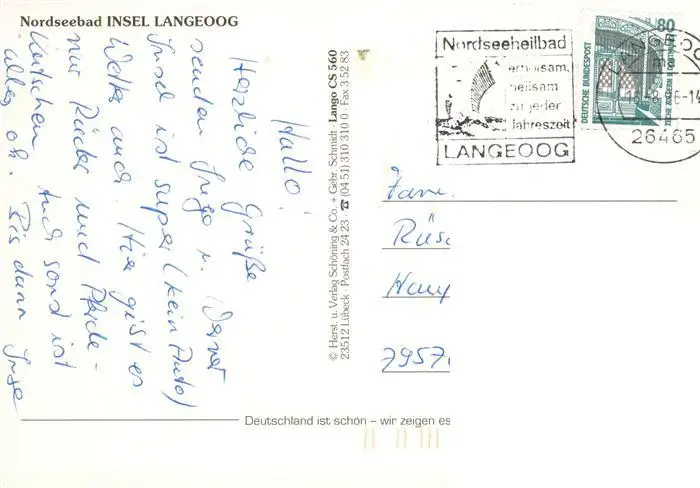 Nordseebad INSEL LANGEOOG
Hallo!
Herzliche Grüße
senden Inge u. Werner
Insel ist super (kein Auto)
Wetter auch. Hier gibt es
nur Räder und Pferde-
kutschen. Auch sonst ist
alles ok. Bis dann Inge
© Herst. u. Verlag Schöning & Co. + Gebr. Schmidt · Lango CS 560
23512 Lübeck · Postfach 24 23 · ☎ (04 51) 310 310 0 · Fax 3 52 83
Nordseeheilbad
erholsam,
heilsam
zu jeder
Jahreszeit
LANGEOOG
80
DEUTSCHE BUNDESPOST
ZECHE ZOLLERN II DORTMUND
26465
Fam.
Rüs
Hau
7957
Deutschland ist schön – wir zeigen es